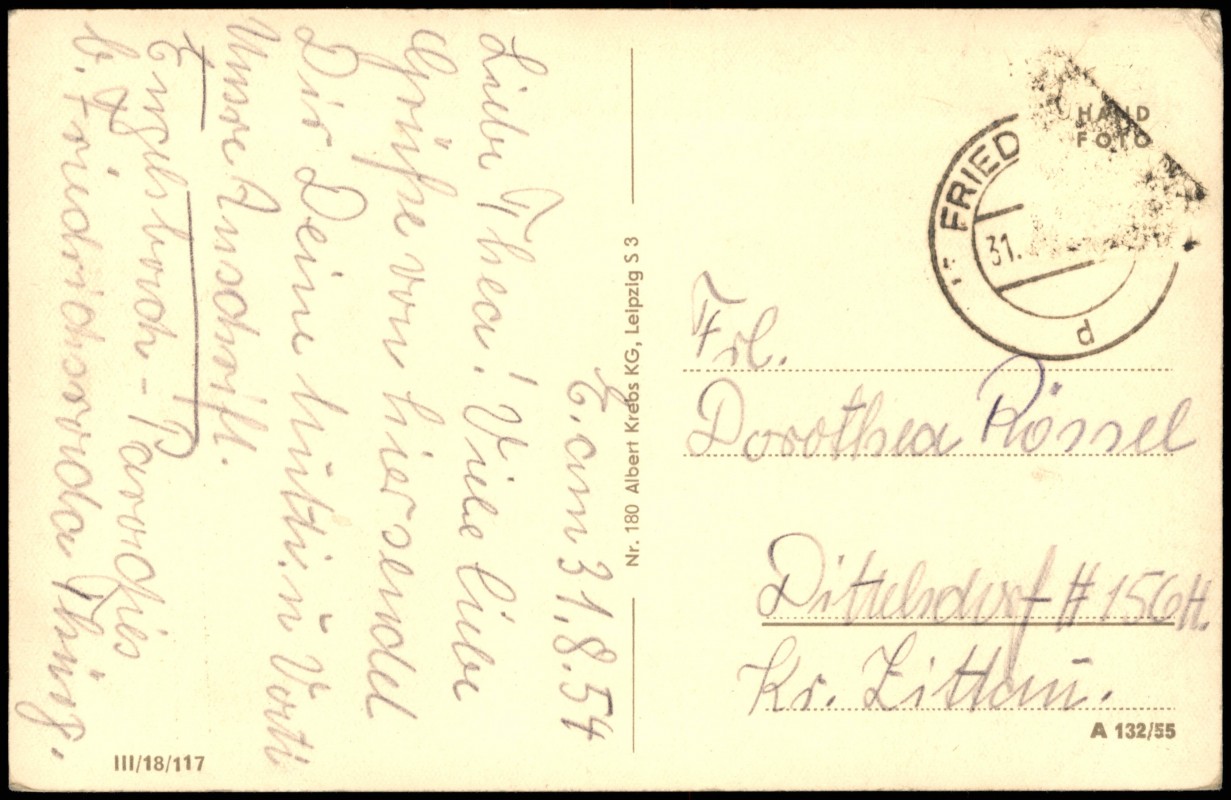 E. am 31.8.54
Liebe Thea! Viele liebe
Grüße von hier sendet
Dir Deine Mutti. u. Vati
Unsre Anschrift.
Engelsbach-
b. Friedrichroda Thürg.
Nr. 180 Albert Krebs KG, Leipzig S 3
III/18/117
HAND
FOTO
FRIED
31.
d
Frl.
Dorothea Rössel
Dittelsdorf # 156H.
Kr. Zittau.
A 132/55